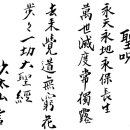 聖呪
永天永地永保長生
萬世滅度常獨露
去來覺道無窮花
步步一切大聖經
少太山